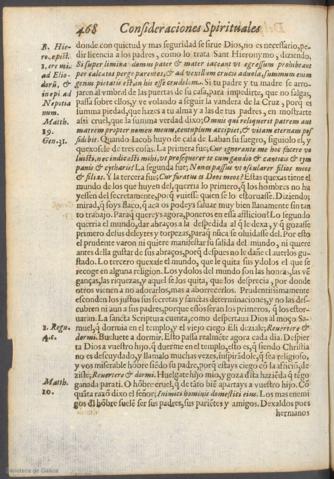 468 Consideraciones Spirituales
donde con quietud y mas seguridad se sirue Dios, no es necessario, pe-
dir licencia a los padres, como lo trata Sant Hieronymo, diziendo,
Si super limina summi pater & mater iaceant vt egressum prohibeant
per calcatos perge parentes, & ad vexillum crucis aduola, summum enim
genus pietatis est, in hoc esse crudelem. Si tu padre y tu madre se arro-
jaren al vmbral de las puertas de su casa, para impedirte, que no salgas,
passa sobre ellos, y ve volando a seguir la vandera de la Cruz, porq̃ es
summa piedad, que hazes a tu alma y a las de tus padres, en mostrarte
ahi cruel, que la summa verdad dixo; Omnis qui reliquerit patrem aut
matrem propter nomen meum, centuplum accipiet, & vitam eternam pos
sidebit. Quando Iacob huyo de casa de Laban su suegro, siguiolo el, y
quexose de tres cosas. La primera fue; Cur ignorante me hoc fuere vo
luisti, nec indicasti mihi, vt prosequerer te cum gaudio & cantus & tym
panis & cytharis? La segunda fue; Non passus vt oscularer filios meos
& filias. Y la tercera fue; Cur furatus es Deos meos? Estas quexas tiene el
mundo de los que huyen del, querria lo primero, q̃ los hombres no ha
yessen del secretamente, porq̃ vuiesse quien se lo estoruasse. Diziendo;
mirad, q̃ soys flaco, q̃ aca os podeys saluar muy bien llanamente sin tan
to trabajo. Paraq̃ quereys agora, poneros en essa afflicion? Lo segundo
querria el mundo, dar abraços a la despedida al q̃ le dexa, y q̃ gozasse
primero de sus deleytes y torpezas, paraq̃ nũca se oluidasse del. Por esto
el prudente varon ni quiere manifestar su salida del mundo, ni quiere
antes della gustar de sus abraços, porq̃ despues no le dañe el auerlos gu-
stado. Lo tercero quexase el mundo, que le quita sus ydolos el que se
recoge en alguna religion. Los ydolos del mundo son las honras, las vẽ
ganças, las riquezas, y aquel se los quita, que los desprecia, por donde
otros vienen a no adorarlos, mas a aborrecerlos. Prudentissimamente
esconden los justos sus secretas y sanctas determinaciones, y no las des-
cubren ni aun a sus padres, porque esos seran los primeros, q̃ los estor-
uaran. La sancta Scriptura cuenta, como despertaua Dios al moço Sa-
muel, q̃ dormia en el templo, y el viejo ciego Eli dezíale; Reuertere &
dormi. Bueluete a dormir. Esto passa realmẽte agora cada dia. Despier
ta Dios a vuestro hijo, q̃ duerme en el templo, esto es, q̃ siendo Christia
no es descuydado, y llamalo muchas vezes, inspirãdole, q̃ sea religioso,
y vos miserable hõbre siẽdo su padre, porq̃ estays ciego cõ la aficiõ, de-
zisle, Reuertere & dormi. Huelgate hijo mio, y goza dsta haziẽda q̃ tẽgo
ganada para ti. O hõbre cruel, q̃ de tãto biẽ apartays a vuestro hijo. Cõ
quãta razõ dixo el señor; Inimici hominis domestici eius. Los mas enemi
gos dl hõbre suelẽ ser sus padres, sus pariẽtes y amigos. Dexaldos pues
hermanos
B. Hie-
ro. epist.
1. ere mi.
ad Elio-
dorũ, &
in epi ad
Nepotia
num.
Matth.
19.
Gen. 31.
1. Regu.
4.c.
Matth.
10.